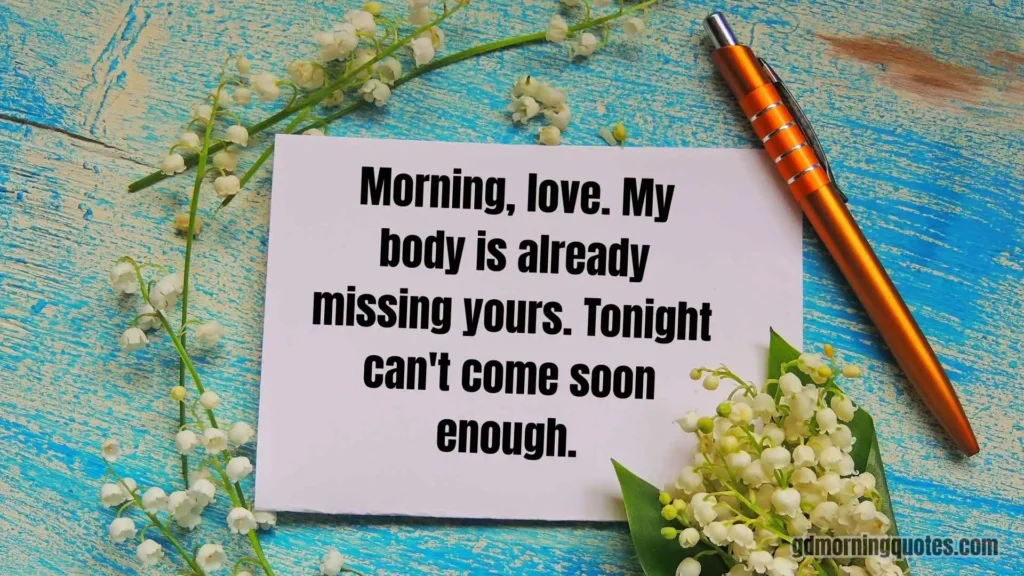 Morning, love. My
body is already
missing yours. Tonight
can't come soon
enough.
gdmorningquotes.com